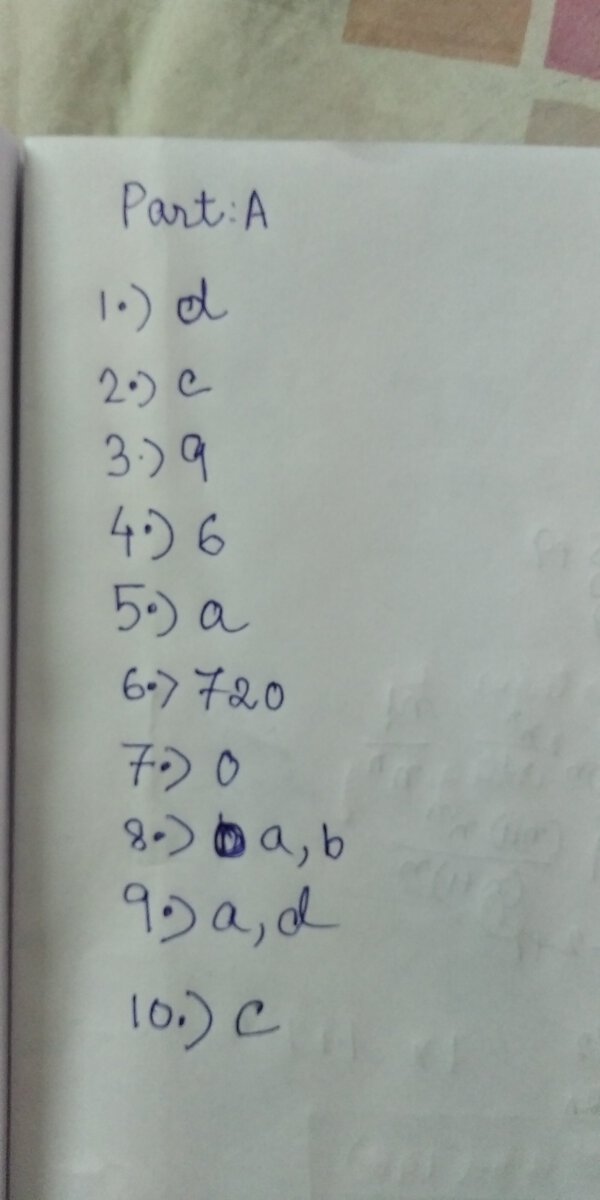 Part:A
1.) d
2.) c
3.) 9
4.) 6
5.) a
6.) 720
7.) 0
8.) a, b
9.) a, d
10.) c